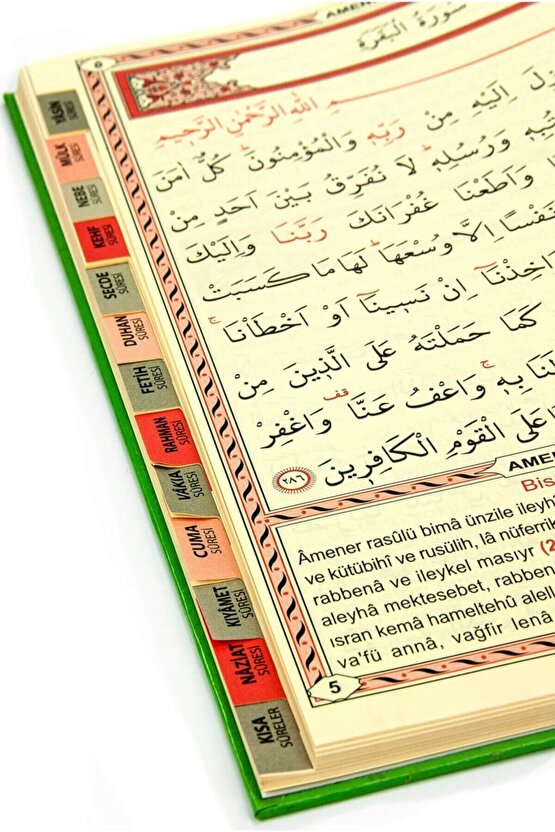 AMENE
سُورَةُ الْبَقَرَةِ
بِسْمِ اللهِ الرَّحْمٰنِ الرَّحِيمِ
اِلَيْهِ مِنْ رَبِّهٖ وَالْمُؤْمِنُونَۜ كُلٌّ اٰمَنَ
وَرُسُلِهٖۜ لَا نُفَرِّقُ بَيْنَ اَحَدٍ مِنْ
وَاَطَعْنَا غُفْرَانَكَ رَبَّنَا وَاِلَيْكَ
نَفْسًا اِلَّا وُسْعَهَاۜ لَهَا مَا كَسَبَتْ
اِنْ نَسٖينَٓا اَوْ اَخْطَأْنَاۚ
كَمَا حَمَلْتَهُ عَلَى الَّذٖينَ مِنْ
لَنَا بِهٖۚ وَاعْفُ عَنَّا۠ وَاغْفِرْ
عَلَى الْقَوْمِ الْكَافِرٖينَ ٢٨٦
AMENE
Bis
Âmener rasûlü bimâ ünzile ileyh
ve kütübihî ve rusülih, lâ nüferri
rabbenâ ve ileykel masıyr (2
aleyhâ mektesebet, rabben
ısran kemâ hameltehû alell
va'fü annâ, vağfir lenâ
5
YASİN SÛRESİ
MÜLK SÛRESİ
NEBE SÛRESİ
KEHF SÛRESİ
SECDE SÛRESİ
DUHAN SÛRESİ
FETİH SÛRESİ
RAHMAN SÛRESİ
VÂKIA SÛRESİ
CUMA SÛRESİ
KIYÂMET SÛRESİ
NÂZİAT SÛRESİ
KISA SÛRELER